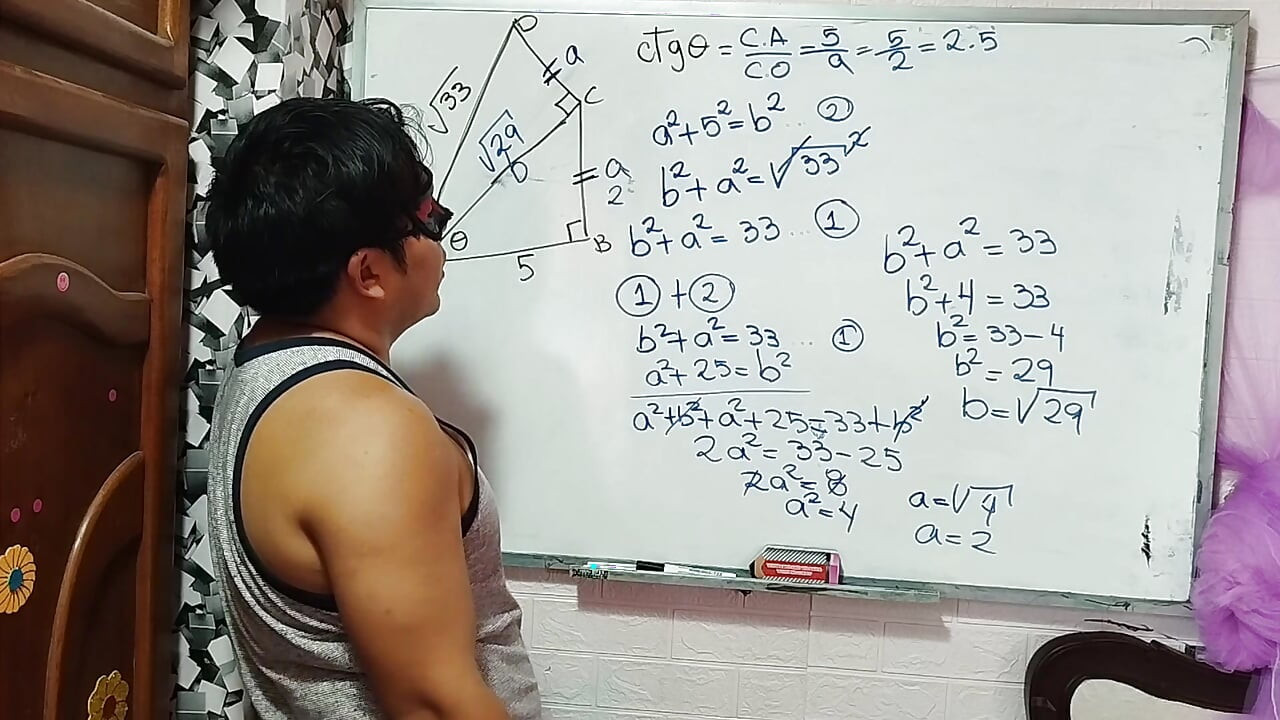 D
a
√33
C
√29
b
a
2
θ
B
5
ctgθ = C.A/C.O = 5/a = 5/2 = 2.5
a² + 5² = b² ... ②
b² + a² = √33²
b² + a² = 33 ... ①
① + ②
b² + a² = 33 ... ①
a² + 25 = b²
a² + b² + a² + 25 = 33 + b²
2a² = 33 - 25
2a² = 8
a² = 4
b² + a² = 33
b² + 4 = 33
b² = 33 - 4
b² = 29
b = √29
a = √4
a = 2